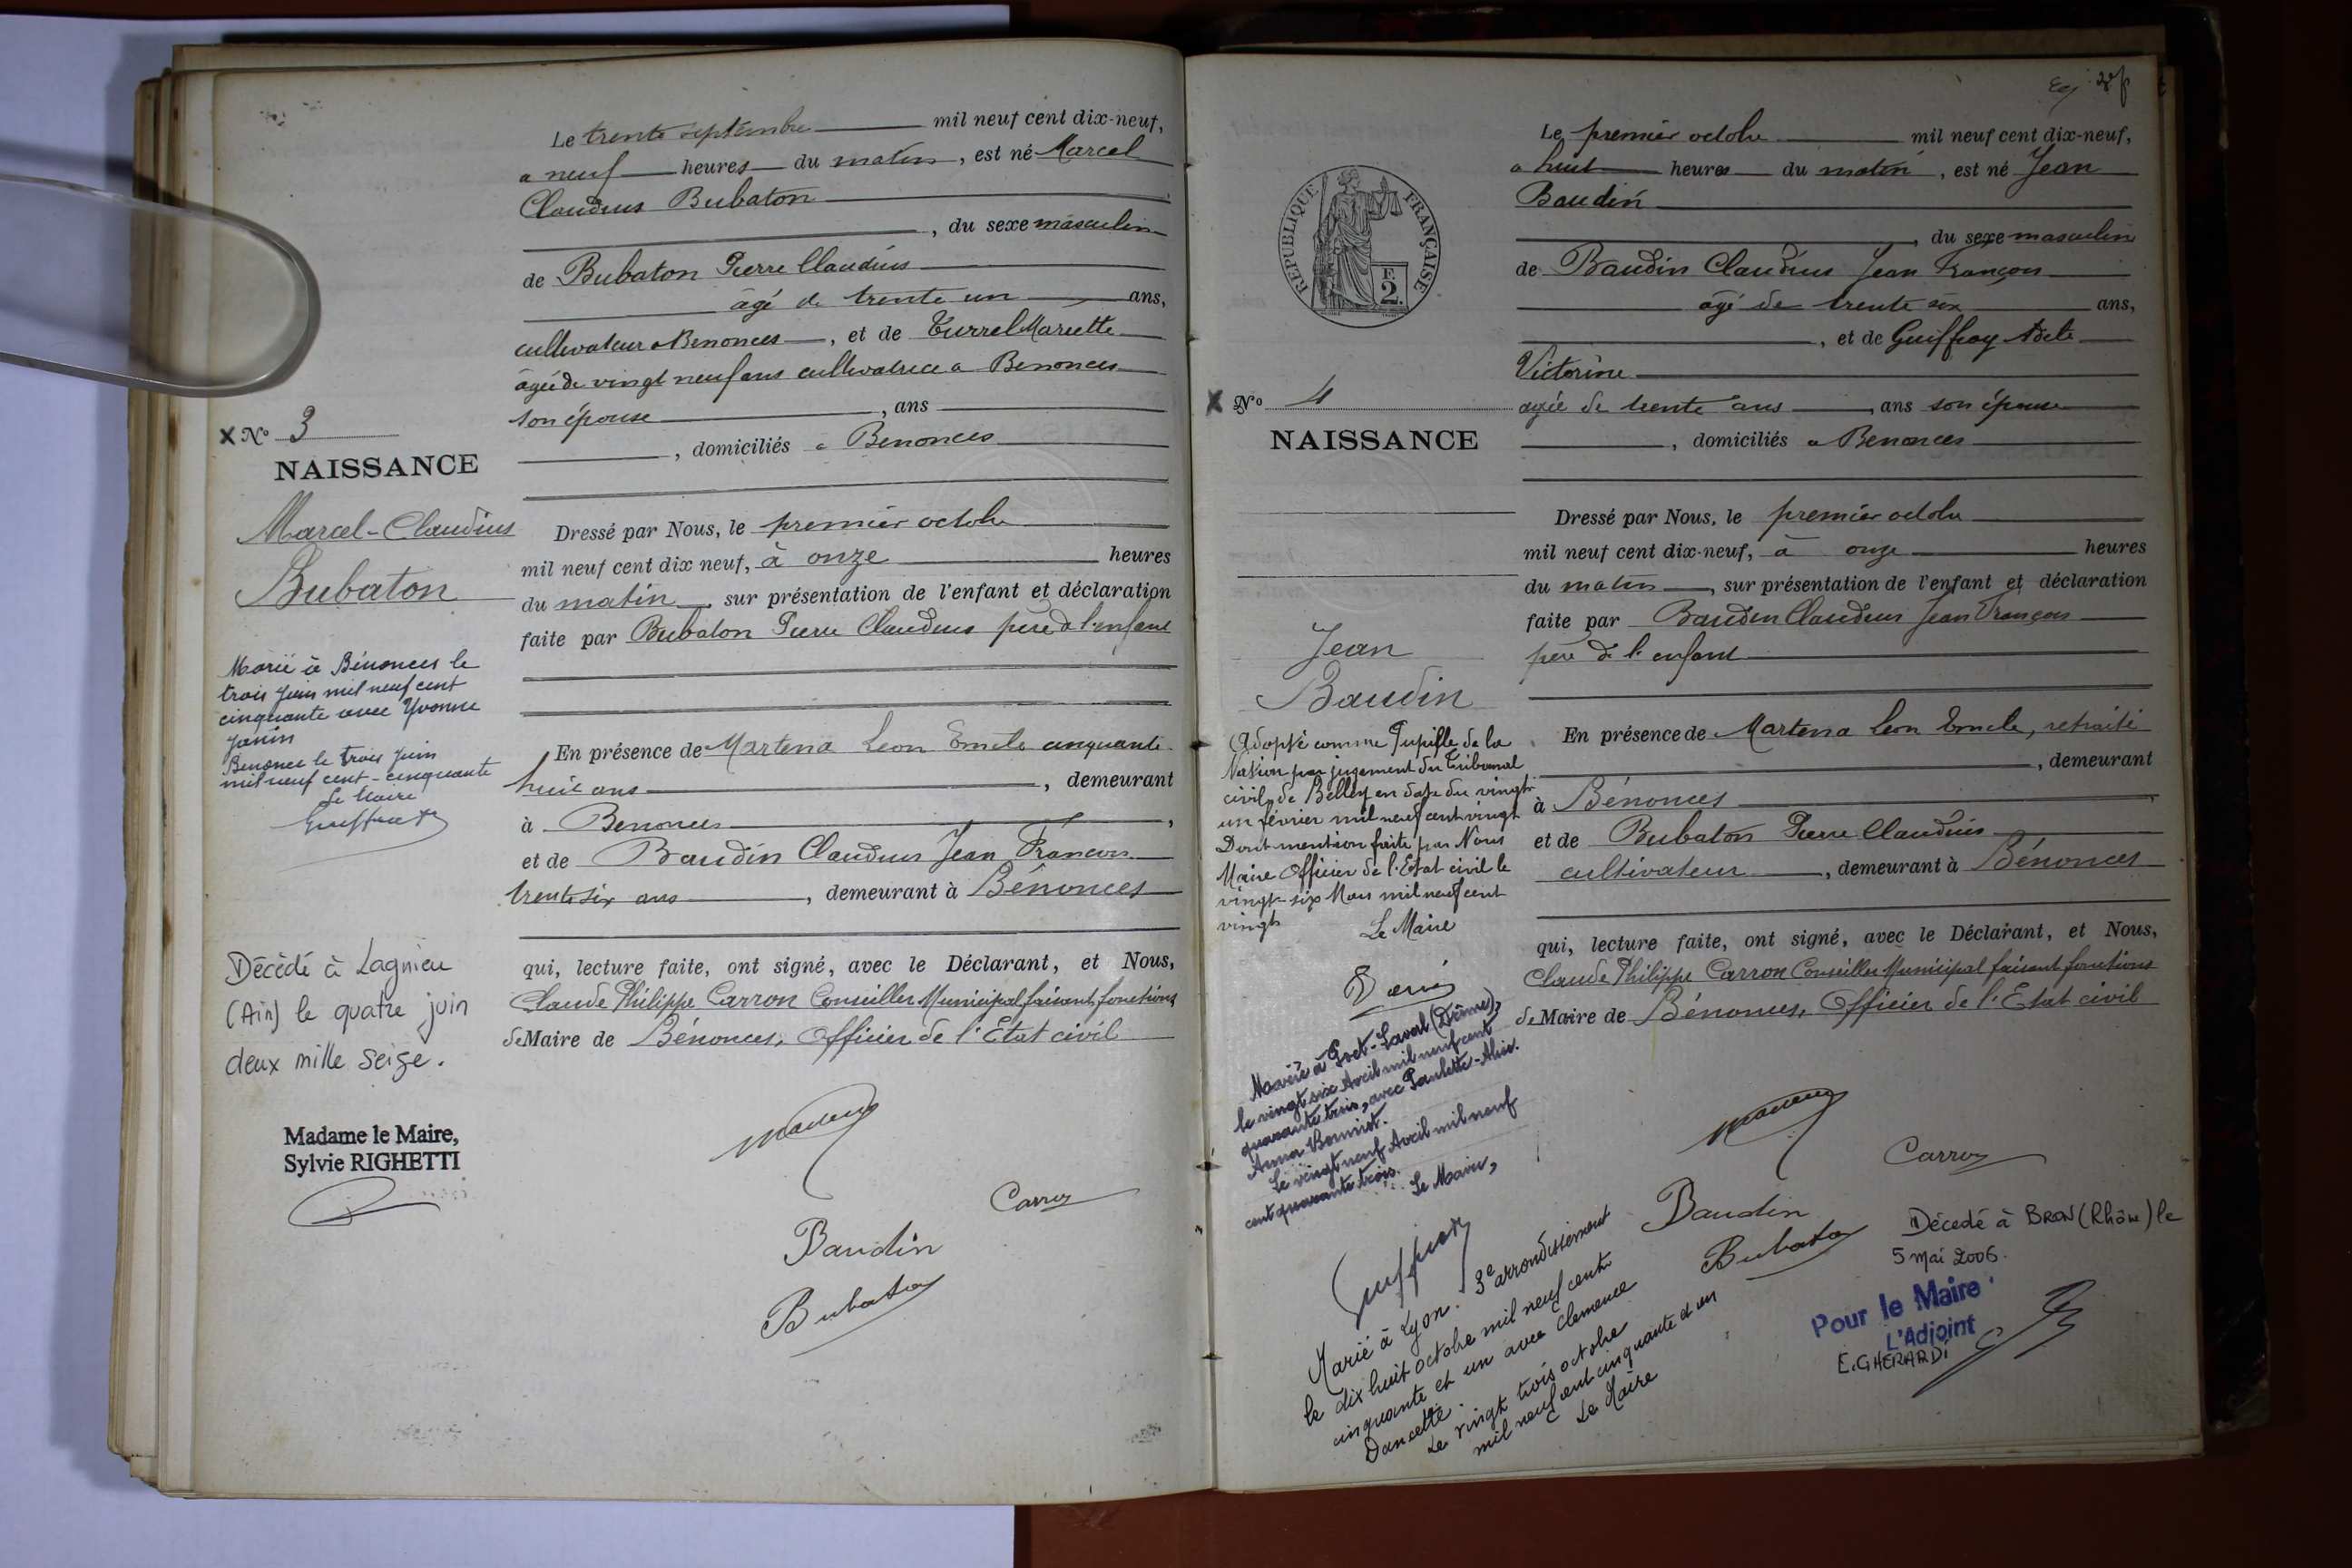 Le trente septembre mil neuf cent dix-neuf,
a neuf heures du matin, est né Marcel
Claudius Bubaton
, du sexe masculin
de Bubaton Pierre Claudius
âgé de trente un ans,
cultivateur a Benonces, et de Turrel Mariette
âgée de vingt neuf ans cultivatrice a Benonces
son épouse, ans
, domiciliés a Benonces
X No 3
NAISSANCE
Marcel-Claudius
Bubaton
Dressé par Nous, le premier octobre
mil neuf cent dix neuf, à onze heures
du matin, sur présentation de l'enfant et déclaration
faite par Bubaton Pierre Claudius père d l'enfant
Marié à Bénonces le
trois Juin mil neuf cent
cinquante avec Yvonne
Janin
Benonces le trois Juin
mil neuf cent-cinquante
Le Maire
En présence de Martena Leon Emile cinquante
huit ans, demeurant
à Benonces,
et de Baudin Claudius Jean François
trente six ans, demeurant à Bénonces
qui, lecture faite, ont signé, avec le Déclarant, et Nous,
Claude Philippe Carron Conseiller Municipal faisant fonctions
de Maire de Bénonces, Officier de l'Etat civil
Décédé à Lagnieu
(Ain) le quatre juin
deux mille seize.
Madame le Maire,
Sylvie RIGHETTI
Carron
Baudin
Bubaton
Le premier octobre mil neuf cent dix-neuf,
a huit heures du matin, est né Jean
Baudin
, du sexe masculin
de Baudin Claudius Jean François
âgé de trente six ans,
, et de Guiffray Adele
Victorine
agée de trente ans, ans son épouse
, domiciliés a Benonces
RÉPUBLIQUE FRANÇAISE
F.
2.
X No 4
NAISSANCE
Jean
Baudin
Dressé par Nous, le premier octobre
mil neuf cent dix-neuf, à onze heures
du matin, sur présentation de l'enfant et déclaration
faite par Baudin Claudius Jean François
père de l'enfant
En présence de Martena Leon Emile, retraité
, demeurant
à Bénonces
et de Bubaton Pierre Claudius
cultivateur, demeurant à Bénonces
qui, lecture faite, ont signé, avec le Déclarant, et Nous,
Claude Philippe Carron Conseiller Municipal faisant fonctions
de Maire de Bénonces, Officier de l'Etat civil
Adopté comme Pupille de la
Nation par jugement du Tribunal
civil de Belley en date du vingt
un février mil neuf cent vingt
Dont mention faite par Nous
Maire Officier de l'Etat civil le
vingt-six Mars mil neuf cent
vingt
Le Maire
Marié à Poët-Laval (Drôme),
le vingt six Avril mil neuf cent
quarante trois, avec Paulette-Alice.
Anna Bonnot.
Le vingt neuf Avril mil neuf
cent quarante trois.
Le Maire,
Marié à Lyon. 3e arrondissement
le dix huit octobre mil neuf cent
cinquante et un avec Clemence
Dancette.
Le vingt trois octobre
mil neuf cent cinquante et un
Le Maire
Carron
Baudin
Bubaton
Décédé à BRON (Rhône) le
5 mai 2006.
Pour le Maire
L'Adjoint
E. GHERARDI